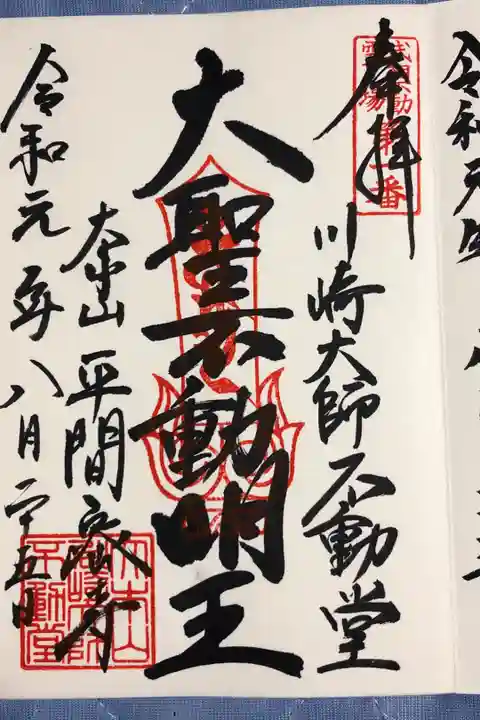 令和元年
武相不動
霊場第一番
奉拝
川崎大師不動堂
大聖不動明王
大本山 平間
令和元年八月二十五日
大本山
川崎大師
不動堂